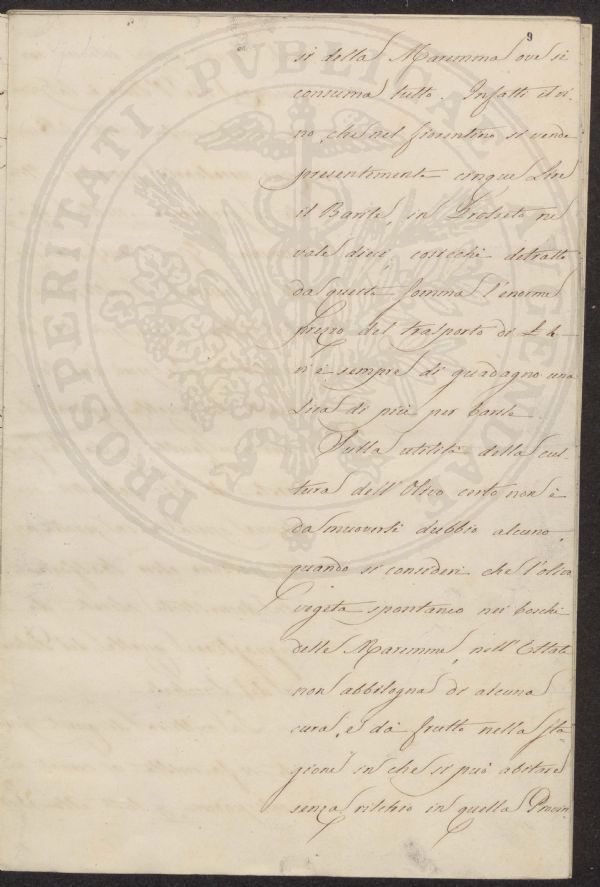 9
si della Maremma ove si
consuma tutto. Infatti il vi-
no, che nel fiorentino si vende
presentemente cinque Lire
il Barile, in Grosseto ne
vale dieci, cosicchè detratto
da questa somma l'enorme
prezzo del trasporto di £ 4 -
vi è sempre di guadagno una
Lira di più per barile.
Sulla utilità della cul-
tura dell'Olivo certo non è
da muoversi dubbio alcuno,
quando si consideri che l'olivo
vegeta spontaneo nei boschi
delle Maremme, nell'Estate
non abbisogna di alcuna
cura, e dà frutto nella sta-
gione in che si può abitare
senza rischio in quella Provin-
PROSPERITATI PVBLICAE AVGENDAE